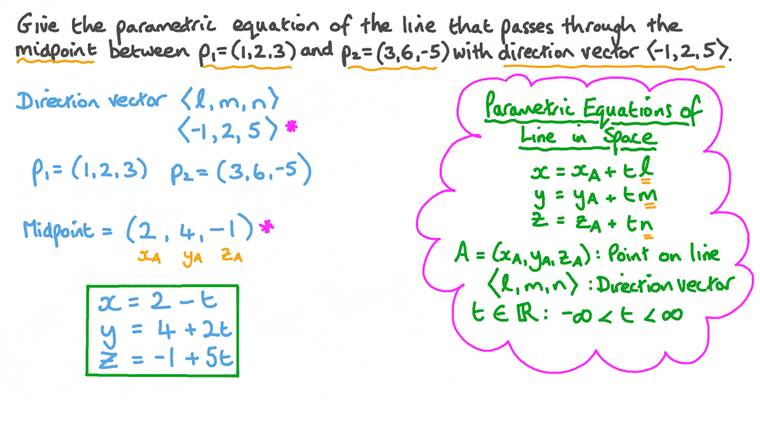 Give the parametric equation of the line that passes through the
midpoint between P₁=(1,2,3) and P₂=(3,6,-5) with direction vector ⟨-1,2,5⟩.
Direction vector ⟨l,m,n⟩
⟨-1,2,5⟩ *
P₁=(1,2,3) P₂=(3,6,-5)
Midpoint = (2,4,-1) *
x_A y_A z_A
x = 2 - t
y = 4 + 2t
z = -1 + 5t
Parametric Equations of
Line in Space
x = x_A + tl
y = y_A + tm
z = z_A + tn
A = (x_A, y_A, z_A) : Point on line
⟨l,m,n⟩ : Direction vector
t ∈ ℝ : -∞ < t < ∞